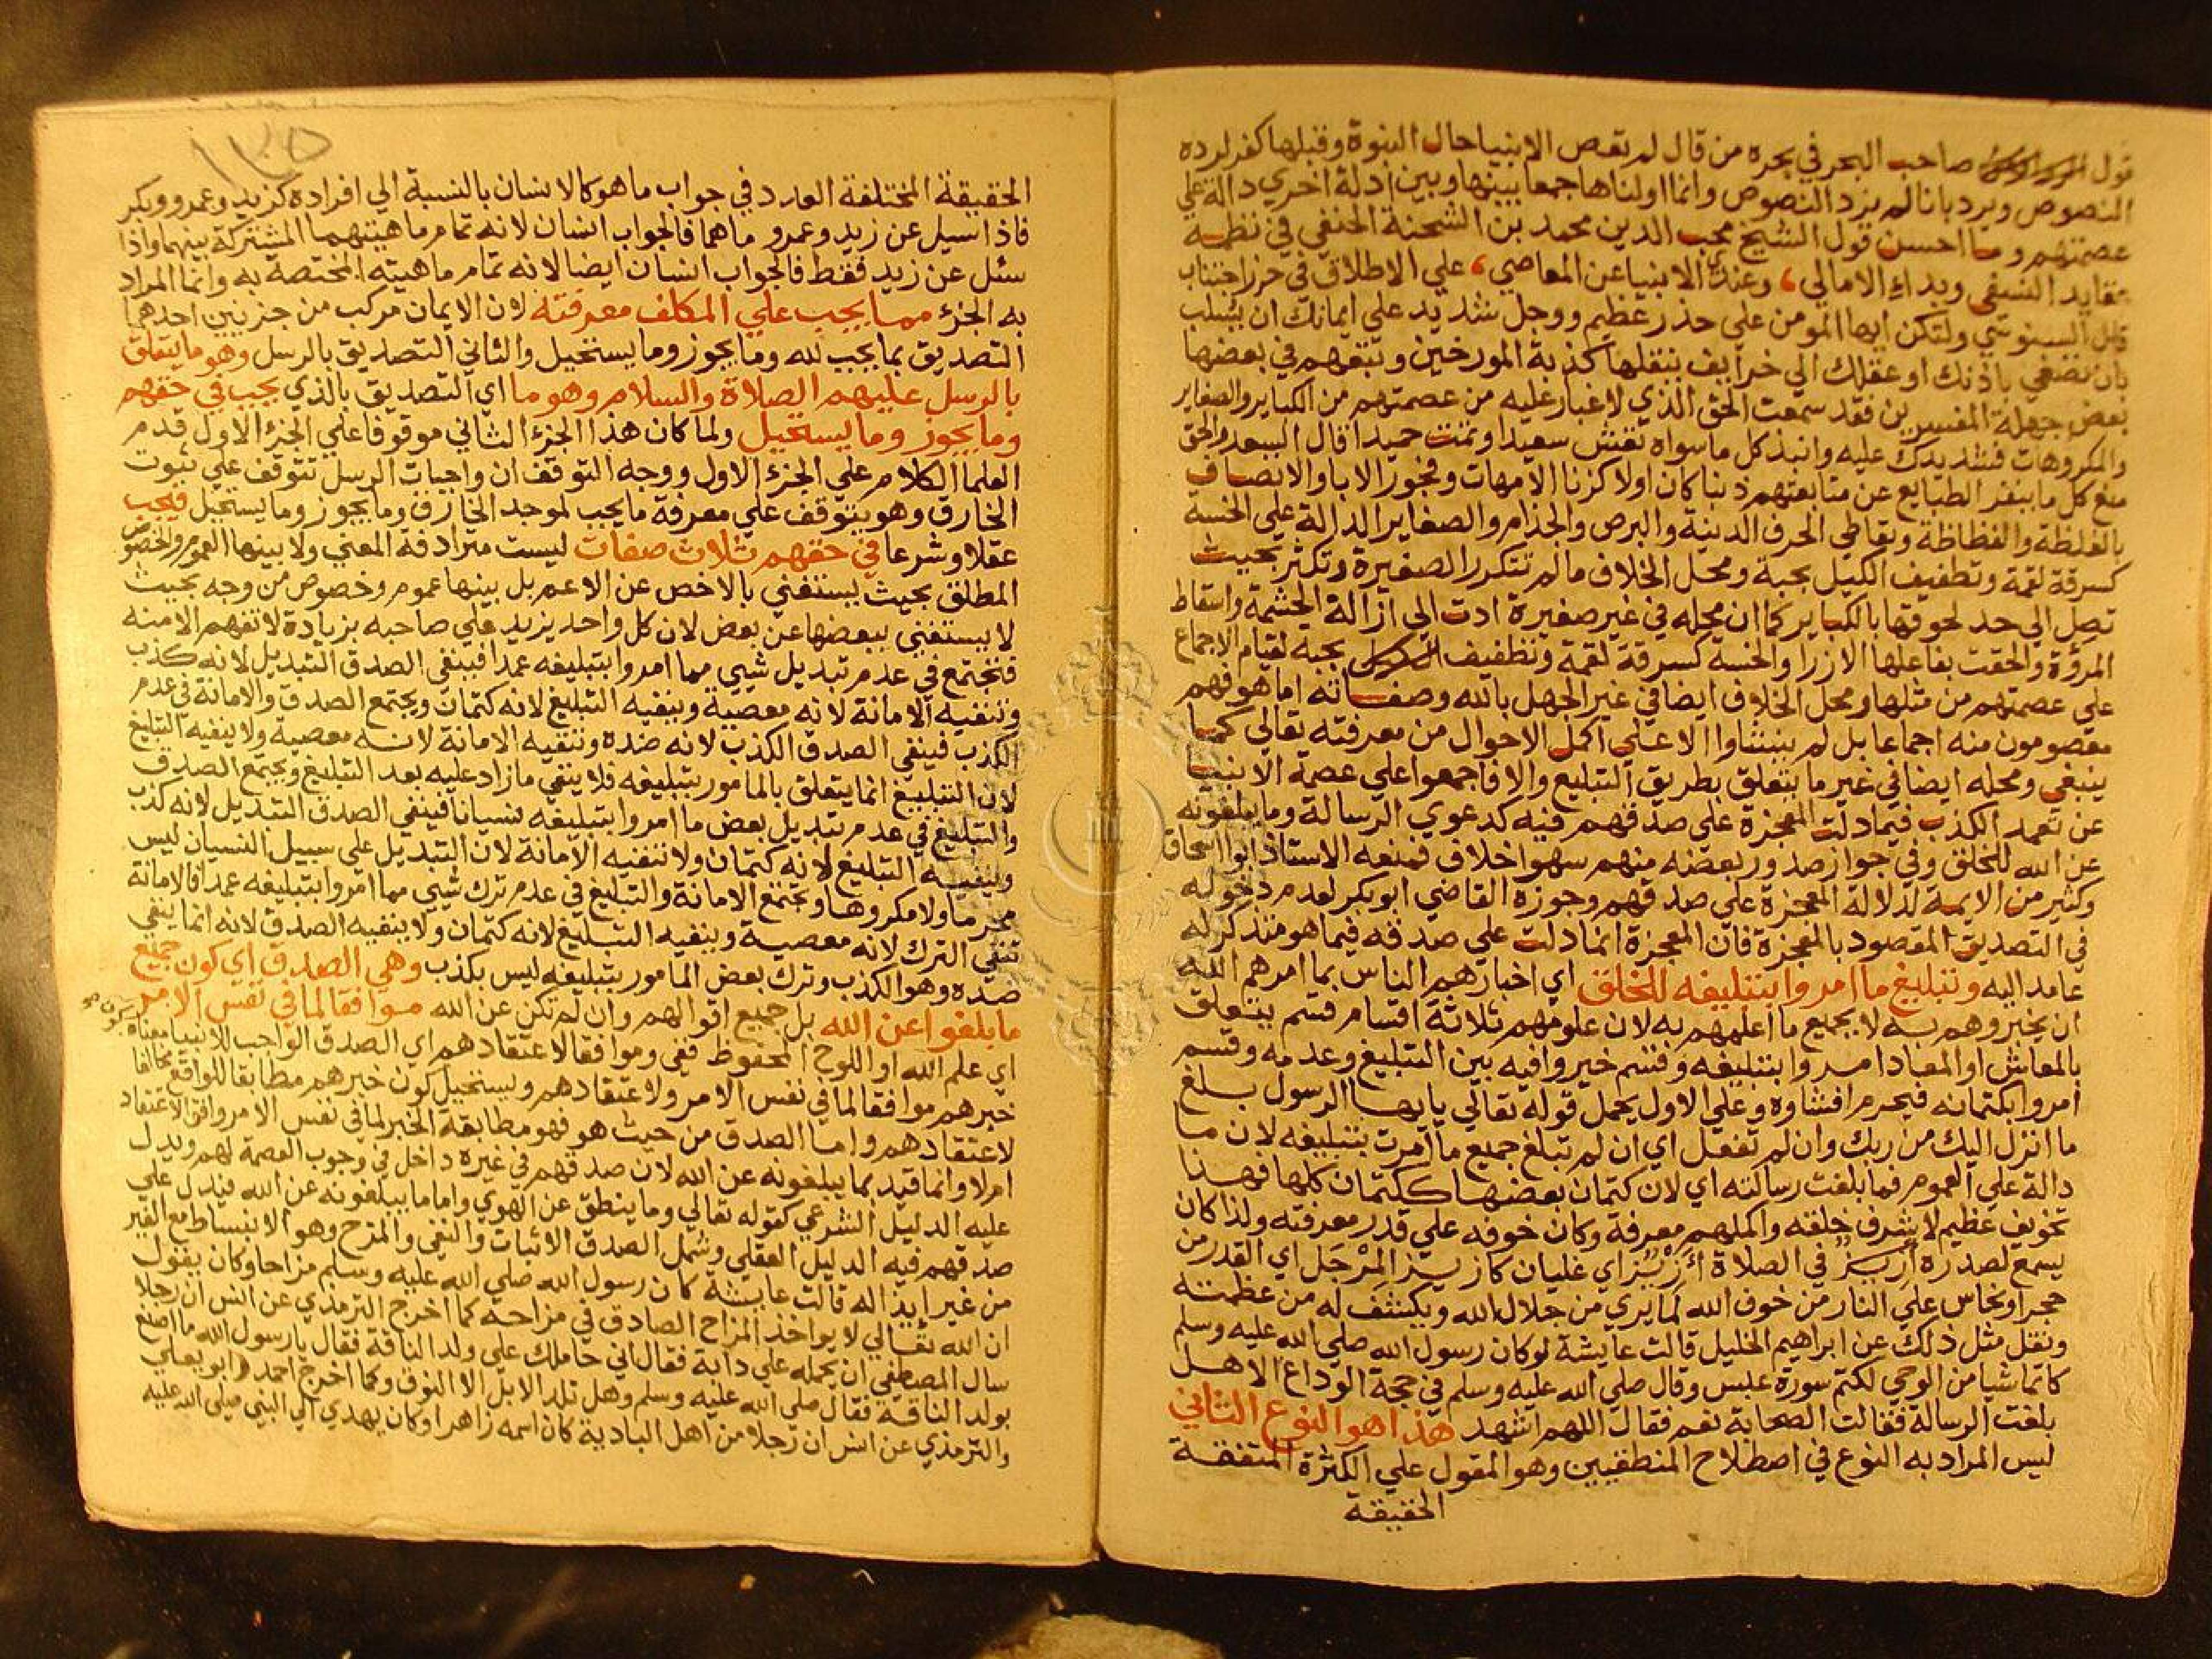 قول صاحب البحر في بحره من قال لم تعص الانبيا حال النبوة وقبلها كفر لرده
النصوص ويرد بانا لم نرد النصوص وانما اولناها جمعا بينها وبين ادلة اخري دالة علي
عصمتهم وما احسن قول الشيخ محب الدين محمد بن الشحنة الحنفي في نظمه
عقايد النسفي وبداء الامالي وعندي الانبيا عن المعاصي علي الاطلاق في حرز اجتناب
قال السنوسي ولتكن ايها المومن علي حذر عظيم ووجل شديد علي ايمانك ان يسلب
بان تصغي باذنك او عقلك الي خرايف ينقلها كذبة المورخين وتبعهم في بعضها
بعض جهلة المفسرين فقد سمعت الحق الذي لا غبار عليه من عصمتهم من الكباير والصغاير
والمكروهات فشد يدك عليه وانبذ كل ما سواه تعش سعيدا وتمت حميدا قال السعد والحق
منع كل ما ينفر الطبايع عن متابعتهم ذنبا كان اولا كزنا الامهات وفجور الابا والاتصاف
بالغلظة والفظاظة وتعاطي الحرف الدينة والبرص والجذام والصغاير الدالة علي الخسة
كسرقة لقمة وتطفيف الكيل بحبة ومحل الخلاف ما لم تتكرر الصغيرة وتكثر بحيث
تصل الي حد لحوقها بالكباير كما ان محله في غير صغيرة ادت الي ازالة الحشمة واسقاط
المروة والحقت بفاعلها الازرا والخسة كسرقة لقمة وتطفيف بحبه لقيام الاجماع
علي عصمتهم من مثلها ومحل الخلاف ايضا في غير الجهل بالله وصفاته اما هو فهم
معصومون منه اجماعا بل لم ينشاوا الا علي اكمل الاحوال من معرفته تعالي كما
ينبغي ومحله ايضا في غير ما يتعلق بطريق التبليغ والا فاجمعوا علي عصمة الانبيا
عن تعمد الكذب فيما دلت المعجزة علي صدقهم فيه كدعوي الرسالة وما يبلغونه
عن الله للخلق وفي جواز صدور بعضه منهم سهوا خلاف فمنعه الاستاذ ابو اسحاق
وكثير من الايمة لدلالة المعجزة علي صدقهم وجوزه القاضي ابو بكر لعدم دخوله
في التصديق المقصود بالمعجزة فان المعجزة انما دلت علي صدقه فيما هو متذكر له
عامد اليه وتبليغ ما امروا بتبليغه للخلق اي اخبارهم الناس بما امرهم الله
ان يخبروهم به لا بجميع ما اعلمهم به لان علومهم ثلاثة اقسام قسم يتعلق
بالمعاش او المعاد امروا بتبليغه وقسم خيروا فيه بين التبليغ وعدمه وقسم
امروا بكتمانه فيحرم افشاوه وعلي الاول يحمل قوله تعالي يايها الرسول بلغ
ما انزل اليك من ربك وان لم تفعل اي ان لم تبلغ جميع ما امرت بتبليغه لان ما
دالة علي العموم فما بلغت رسالته اي لان كتمان بعضها ككتمان كلها فهذا
تخويف عظيم لاشرف خلقه واكملهم معرفة وكان خوفه علي قدر معرفته ولذا كان
يسمع لصدره ازيز في الصلاة اي غليان كازيز المرجل اي القدر من
حجر او نحاس علي النار من خوف الله لما يري من جلال الله ويكشف له من عظمته
ونقل مثل ذلك عن ابراهيم الخليل قالت عايشة لو كان رسول الله صلي الله عليه وسلم
كاتما شيا من الوحي لكتم سورة عبس وقال صلي الله عليه وسلم في حجة الوداع الا هل
بلغت الرسالة فقالت الصحابة نعم فقال اللهم اشهد هذا هو النوع الثاني
ليس المراد به النوع في اصطلاح المنطقيين وهو المقول علي الكثرة المتفقة
الحقيقة
١٢٥
الحقيقة المختلفة العدد في جواب ما هو كالانسان بالنسبة الي افراده كزيد وعمرو وبكر
فاذا سيل عن زيد وعمرو ما هما فالجواب انسان لانه تمام ماهيتهما المشتركة بينهما واذا
سئل عن زيد فقط فالجواب انسان ايضا لانه تمام ماهيته المختصة به وانما المراد
به الجزء مما يجب علي المكلف معرفته لان الايمان مركب من جزيين احدهما
التصديق بما يجب لله وما يجوز وما يستحيل والثاني التصديق بالرسل وهو ما يتعلق
بالرسل عليهم الصلاة والسلام وهو ما اي التصديق بالذي يجب في حقهم
وما يجوز وما يستحيل ولما كان هذا الجزء الثاني موقوفا علي الجزء الاول قدم
العلما الكلام علي الجزء الاول ووجه التوقف ان واجبات الرسل تتوقف علي ثبوت
الخارق وهو يتوقف علي معرفة ما يجب لموجد الخارق وما يجوز وما يستحيل فيجب
عقلا وشرعا في حقهم ثلاث صفات ليست مترادفة المعني ولا بينها العموم والخصوص
المطلق بحيث يستغني بالاخص عن الاعم بل بينها عموم وخصوص من وجه بحيث
لا يستغني ببعضها عن بعض لان كل واحد يزيد علي صاحبه بزيادة لا تفهم الا منه
فتجتمع في عدم تبديل شيي مما امروا بتبليغه عمدا فينفي الصدق التبديل لانه كذب
وتنفيه الامانة لانه معصية وينفيه التبليغ لانه كتمان ويجتمع الصدق والامانة في عدم
الكذب فينفي الصدق الكذب لانه ضده وتنفيه الامانة لانه معصية ولا ينفيه التبليغ
لان التبليغ انما يتعلق بالمامور بتبليغه فلا ينفي ما زاد عليه بعد التبليغ ويجتمع الصدق
والتبليغ في عدم تبديل بعض ما امروا بتبليغه نسيانا فينفي الصدق التبديل لانه كذب
وينفيه التبليغ لانه كتمان ولا تنفيه الامانة لان التبديل علي سبيل النسيان ليس
محرما ولا مكروها وتجتمع الامانة والتبليغ في عدم ترك شيي مما امروا بتبليغه عمدا فالامانة
تنفي الترك لانه معصية وينفيه التبليغ لانه كتمان ولا ينفيه الصدق لانه انما ينفي
ضده وهو الكذب وترك بعض المامور بتبليغه ليس بكذب وهي الصدق اي كون جميع
ما بلغوا عن الله بل جميع اقوالهم وان لم تكن عن الله موافقا لما في نفس الامر
اي علم الله او اللوح المحفوظ ففي وموافقا لاعتقادهم اي الصدق الواجب للانبيا معناه
خبرهم موافقا لما في نفس الامر ولاعتقادهم ويستحيل كون خبرهم مطابقا للواقع مخالفا
لاعتقادهم واما الصدق من حيث هو فهو مطابقة الخبر لما في نفس الامر وافق الاعتقاد
ام لا وانما قيد بما يبلغونه عن الله لان صدقهم في غيره داخل في وجوب العصمة لهم ويدل
عليه الدليل الشرعي كقوله تعالي وما ينطق عن الهوي واما ما يبلغونه عن الله فيدل علي
صدقهم فيه الدليل العقلي وشمل الصدق الاثبات والنفي والمزح وهو الانبساط مع الغير
من غير ايذا له قالت عايشة كان رسول الله صلي الله عليه وسلم مزاحا وكان يقول
ان الله تعالي لا يواخذ المزاح الصادق في مزاحه كما اخرج الترمذي عن انس ان رجلا
سال المصطفي ان يحمله علي دابة فقال اني حاملك علي ولد الناقة فقال يا رسول الله ما اصنع
بولد الناقة فقال صلي الله عليه وسلم وهل تلد الابل الا النوق وكما اخرج احمد وابو يعلي
والترمذي عن انس ان رجلا من اهل البادية كان اسمه زاهرا وكان يهدي الي النبي صلي الله عليه